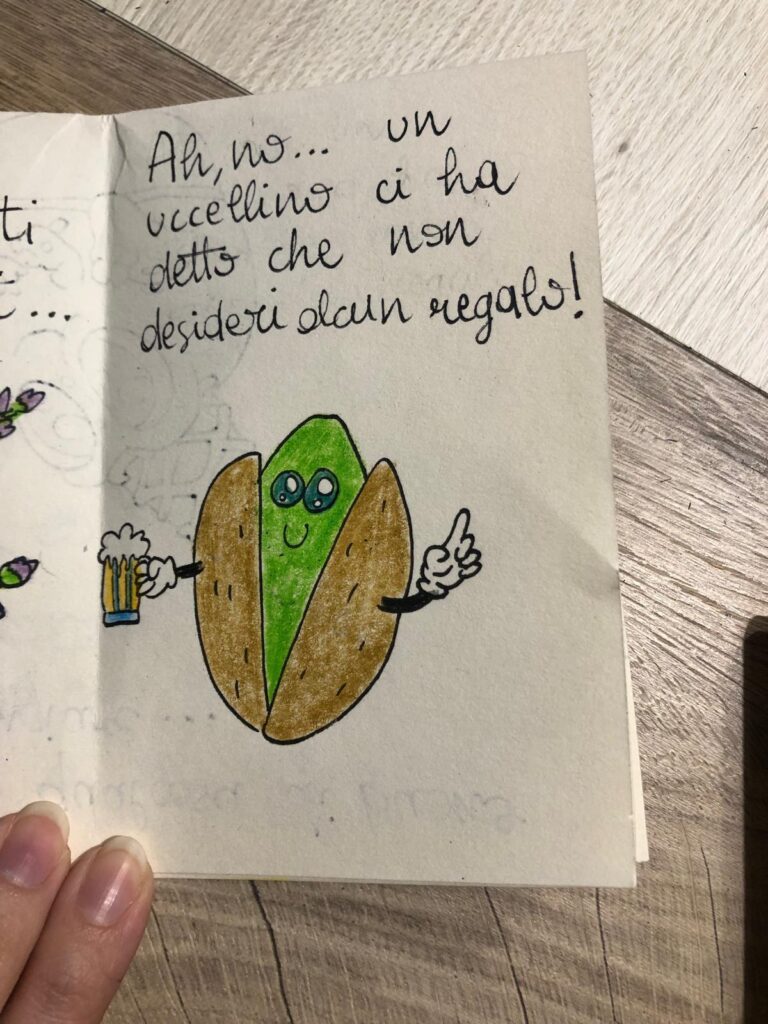 Ah, no... un
uccellino ci ha
detto che non
desideri alcun regalo!
ti
...